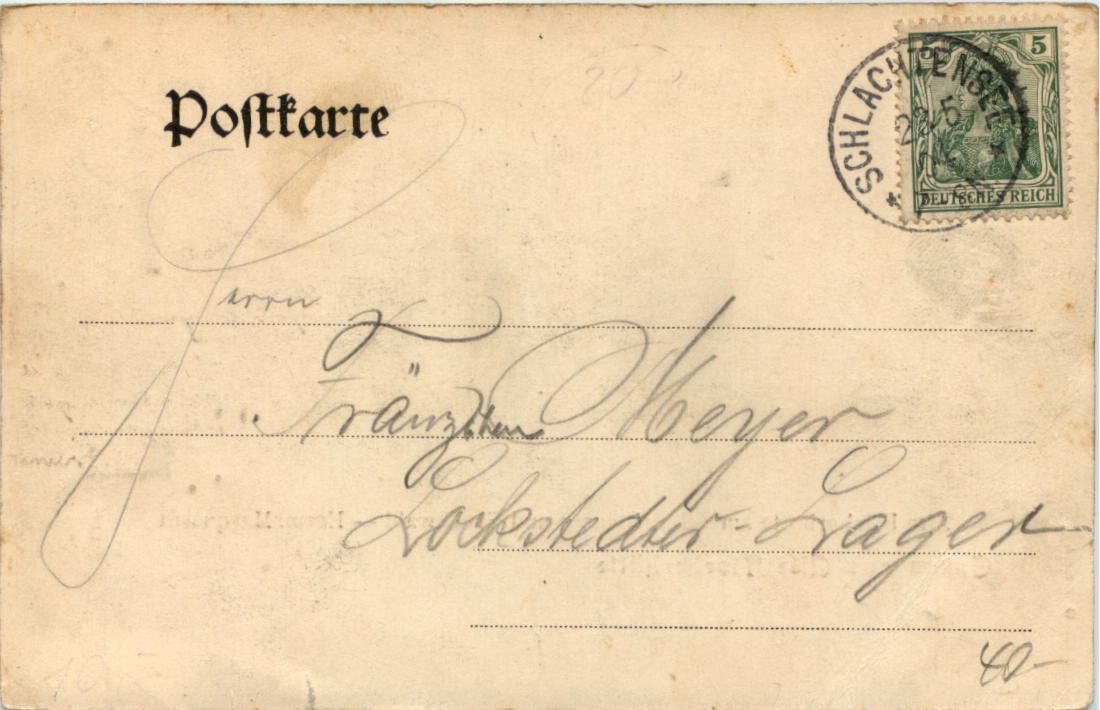 Postkarte
5 5
SCHLACHTENSEE
22 5
DEUTSCHES REICH
Herrn
Fränzchen Meyer
Lockstedter-Lager
40-